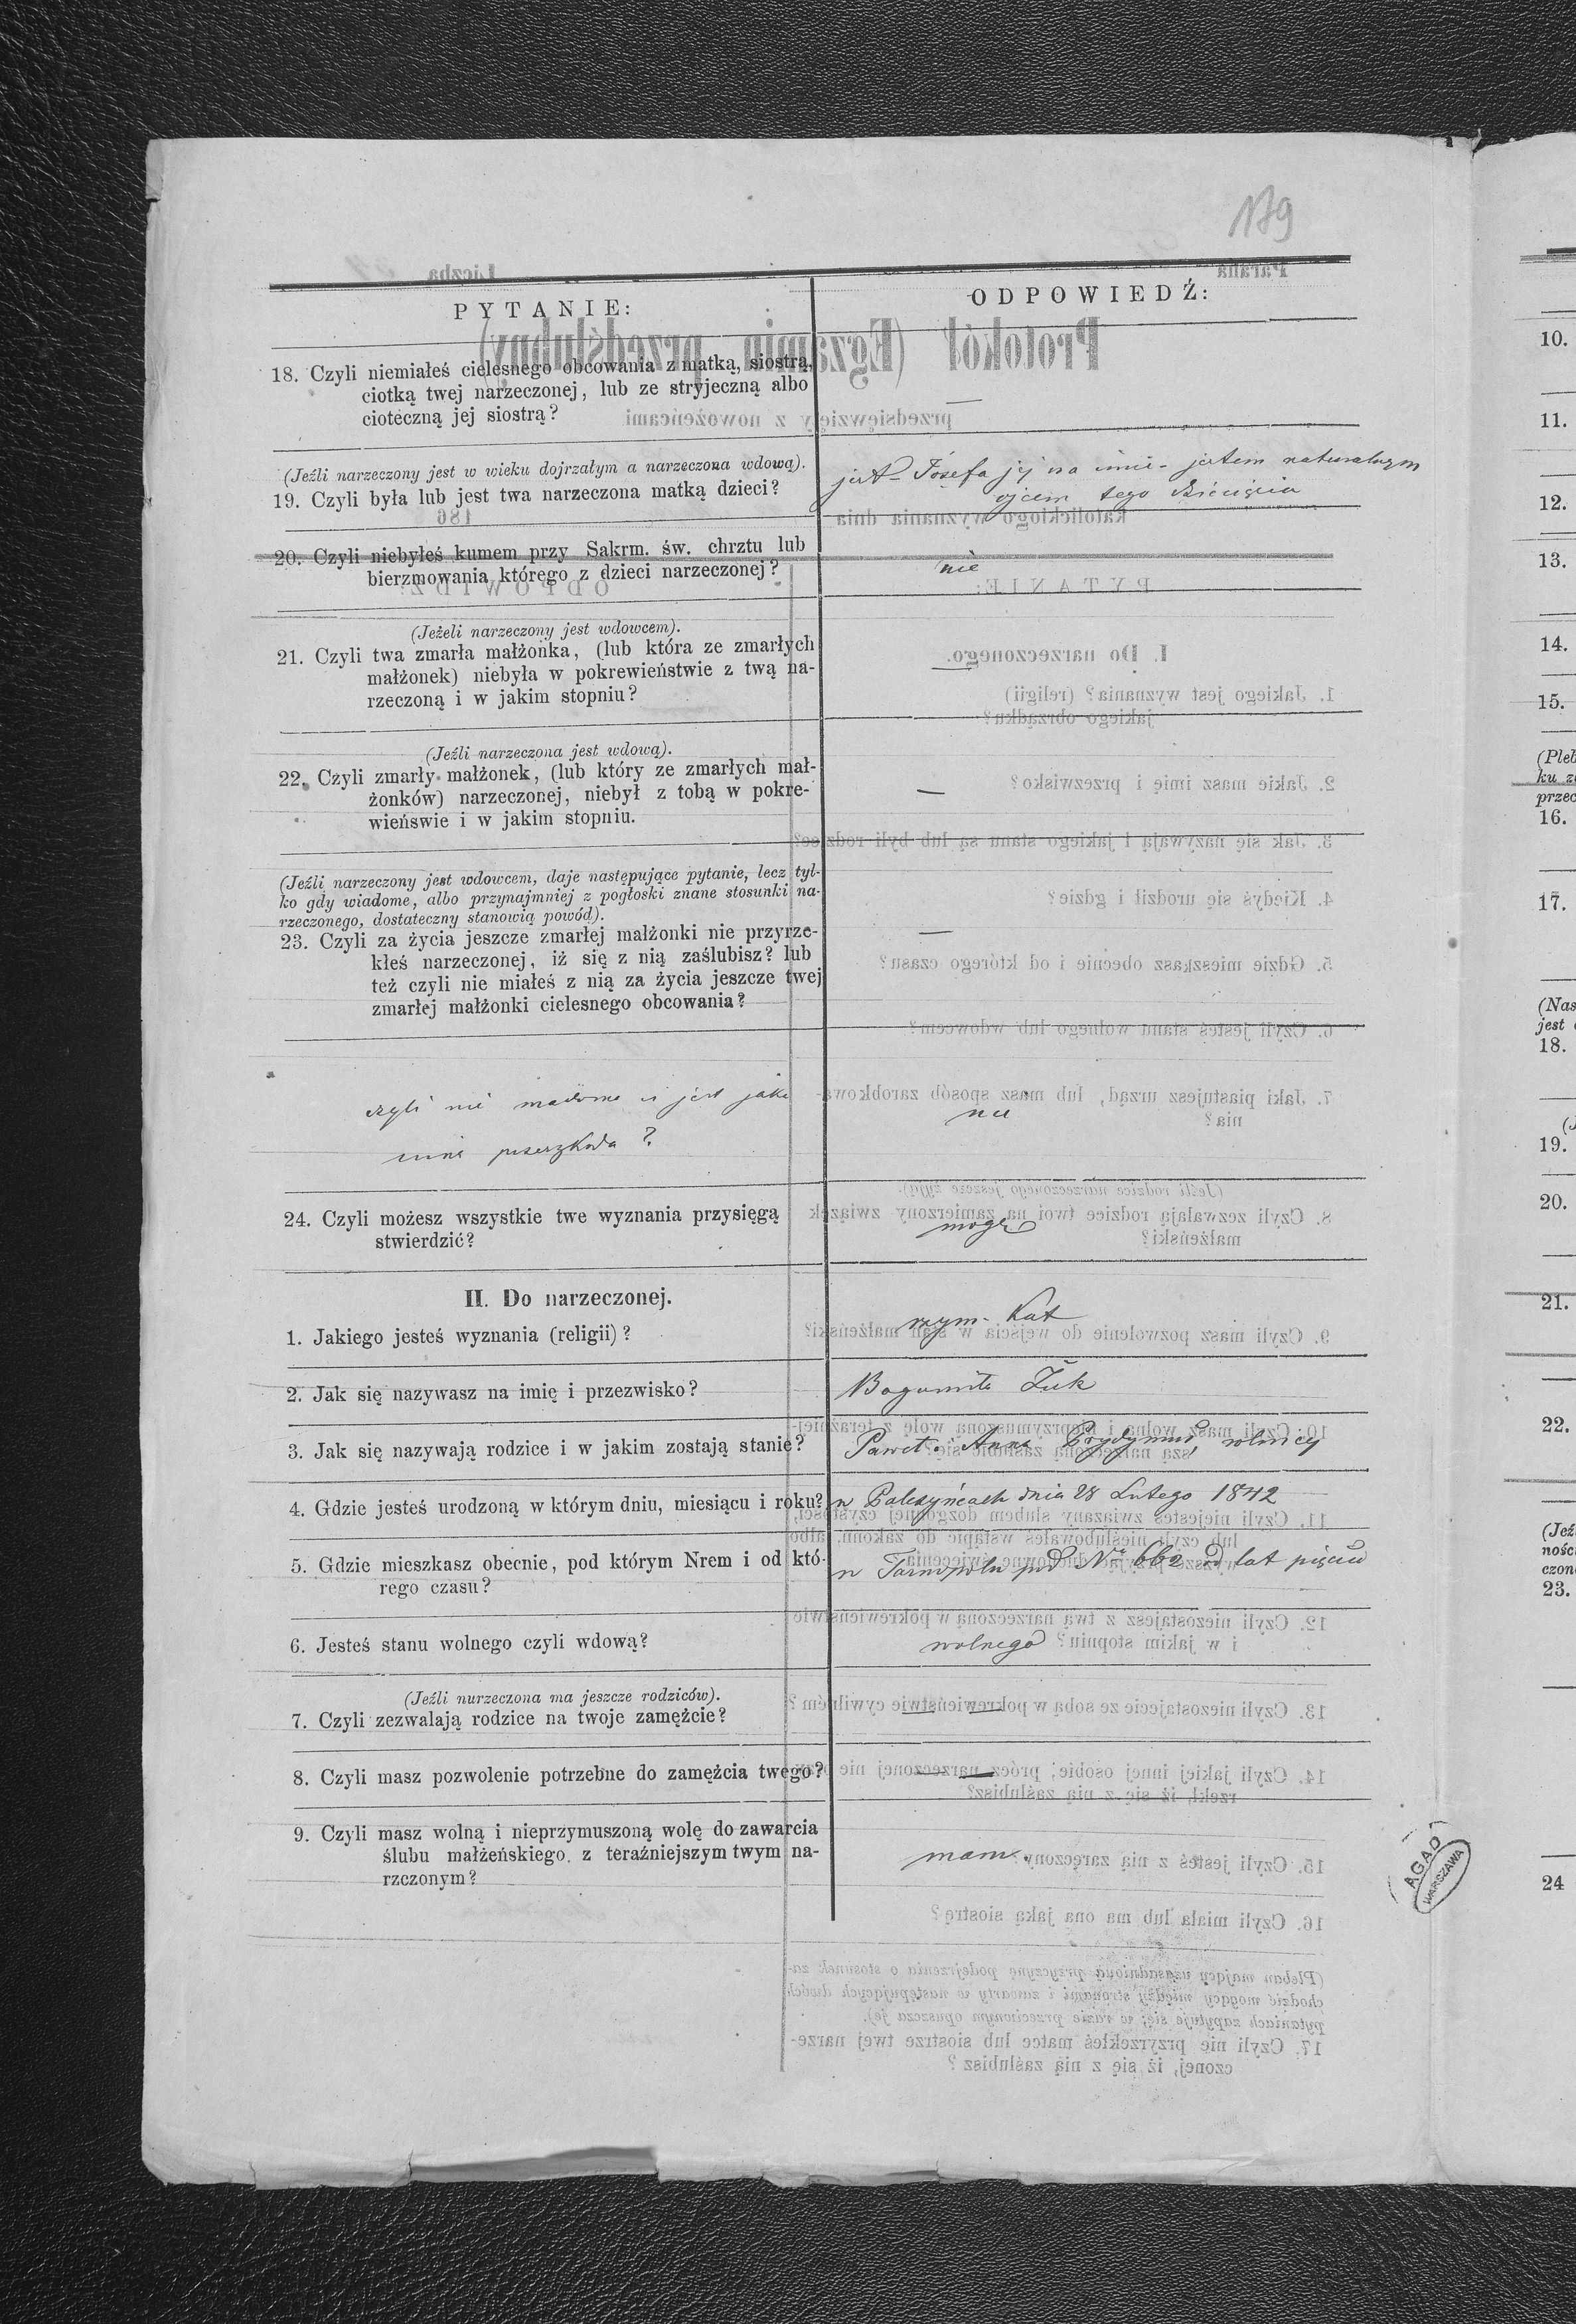 179
PYTANIE:
ODPOWIEDŹ:
18. Czyli niemiałeś cielesnego obcowania z matką, siostrą,
ciotką twej narzeczonej, lub ze stryjeczną albo
cioteczną jej siostrą?
—
(Jeźli narzeczony jest w wieku dojrzałym a narzeczona wdową).
19. Czyli była lub jest twa narzeczona matką dzieci?
jest Józefa jej na imie - jestem naturalnym
ojcem tego dziecięcia
20. Czyli niebyłeś kumem przy Sakrm. św. chrztu lub
bierzmowania którego z dzieci narzeczonej?
nie
(Jeżeli narzeczony jest wdowcem).
21. Czyli twa zmarła małżonka, (lub która ze zmarłych
małżonek) niebyła w pokrewieństwie z twą na-
rzeczoną i w jakim stopniu?
—
(Jeźli narzeczona jest wdową).
22. Czyli zmarły małżonek, (lub który ze zmarłych mał-
żonków) narzeczonej, niebył z tobą w pokre-
wieńswie i w jakim stopniu.
—
(Jeźli narzeczony jest wdowcem, daje następujące pytanie, lecz tyl-
ko gdy wiadome, albo przynajmniej z pogłoski znane stosunki na-
rzeczonego, dostateczny stanowią powód).
23. Czyli za życia jeszcze zmarłej małżonki nie przyrze-
kłeś narzeczonej, iż się z nią zaślubisz? lub
też czyli nie miałeś z nią za życia jeszcze twej
zmarłej małżonki cielesnego obcowania?
—
czyli nie jest jaka
inna przeszkoda?
nie
24. Czyli możesz wszystkie twe wyznania przysięgą
stwierdzić?
mogę
II. Do narzeczonej.
1. Jakiego jesteś wyznania (religii)?
rzym. Kat
2. Jak się nazywasz na imię i przezwisko?
Bogumiła Żuk
3. Jak się nazywają rodzice i w jakim zostają stanie?
Paweł i Anna rolnicy
4. Gdzie jesteś urodzoną w którym dniu, miesiącu i roku?
w dnia 28 Lutego 1842
5. Gdzie mieszkasz obecnie, pod którym Nrem i od któ-
rego czasu?
w Tarnopolu pod Nr. 662 od lat pięciu
6. Jesteś stanu wolnego czyli wdową?
wolnego
(Jeźli nurzeczona ma jeszcze rodziców).
7. Czyli zezwalają rodzice na twoje zamężcie?
— —
8. Czyli masz pozwolenie potrzebne do zamężcia twego?
— —
9. Czyli masz wolną i nieprzymuszoną wolę do zawarcia
ślubu małżeńskiego, z teraźniejszym twym na-
rzczonym?
mam.
A.G.A.D
WARSZAWA
10.
11.
12.
13.
14.
15.
(Pleb
ku za
przec
16.
17.
(Nas
jest
18.
19.
20.
21.
22.
(Jeź
nośc
czon
23.
24